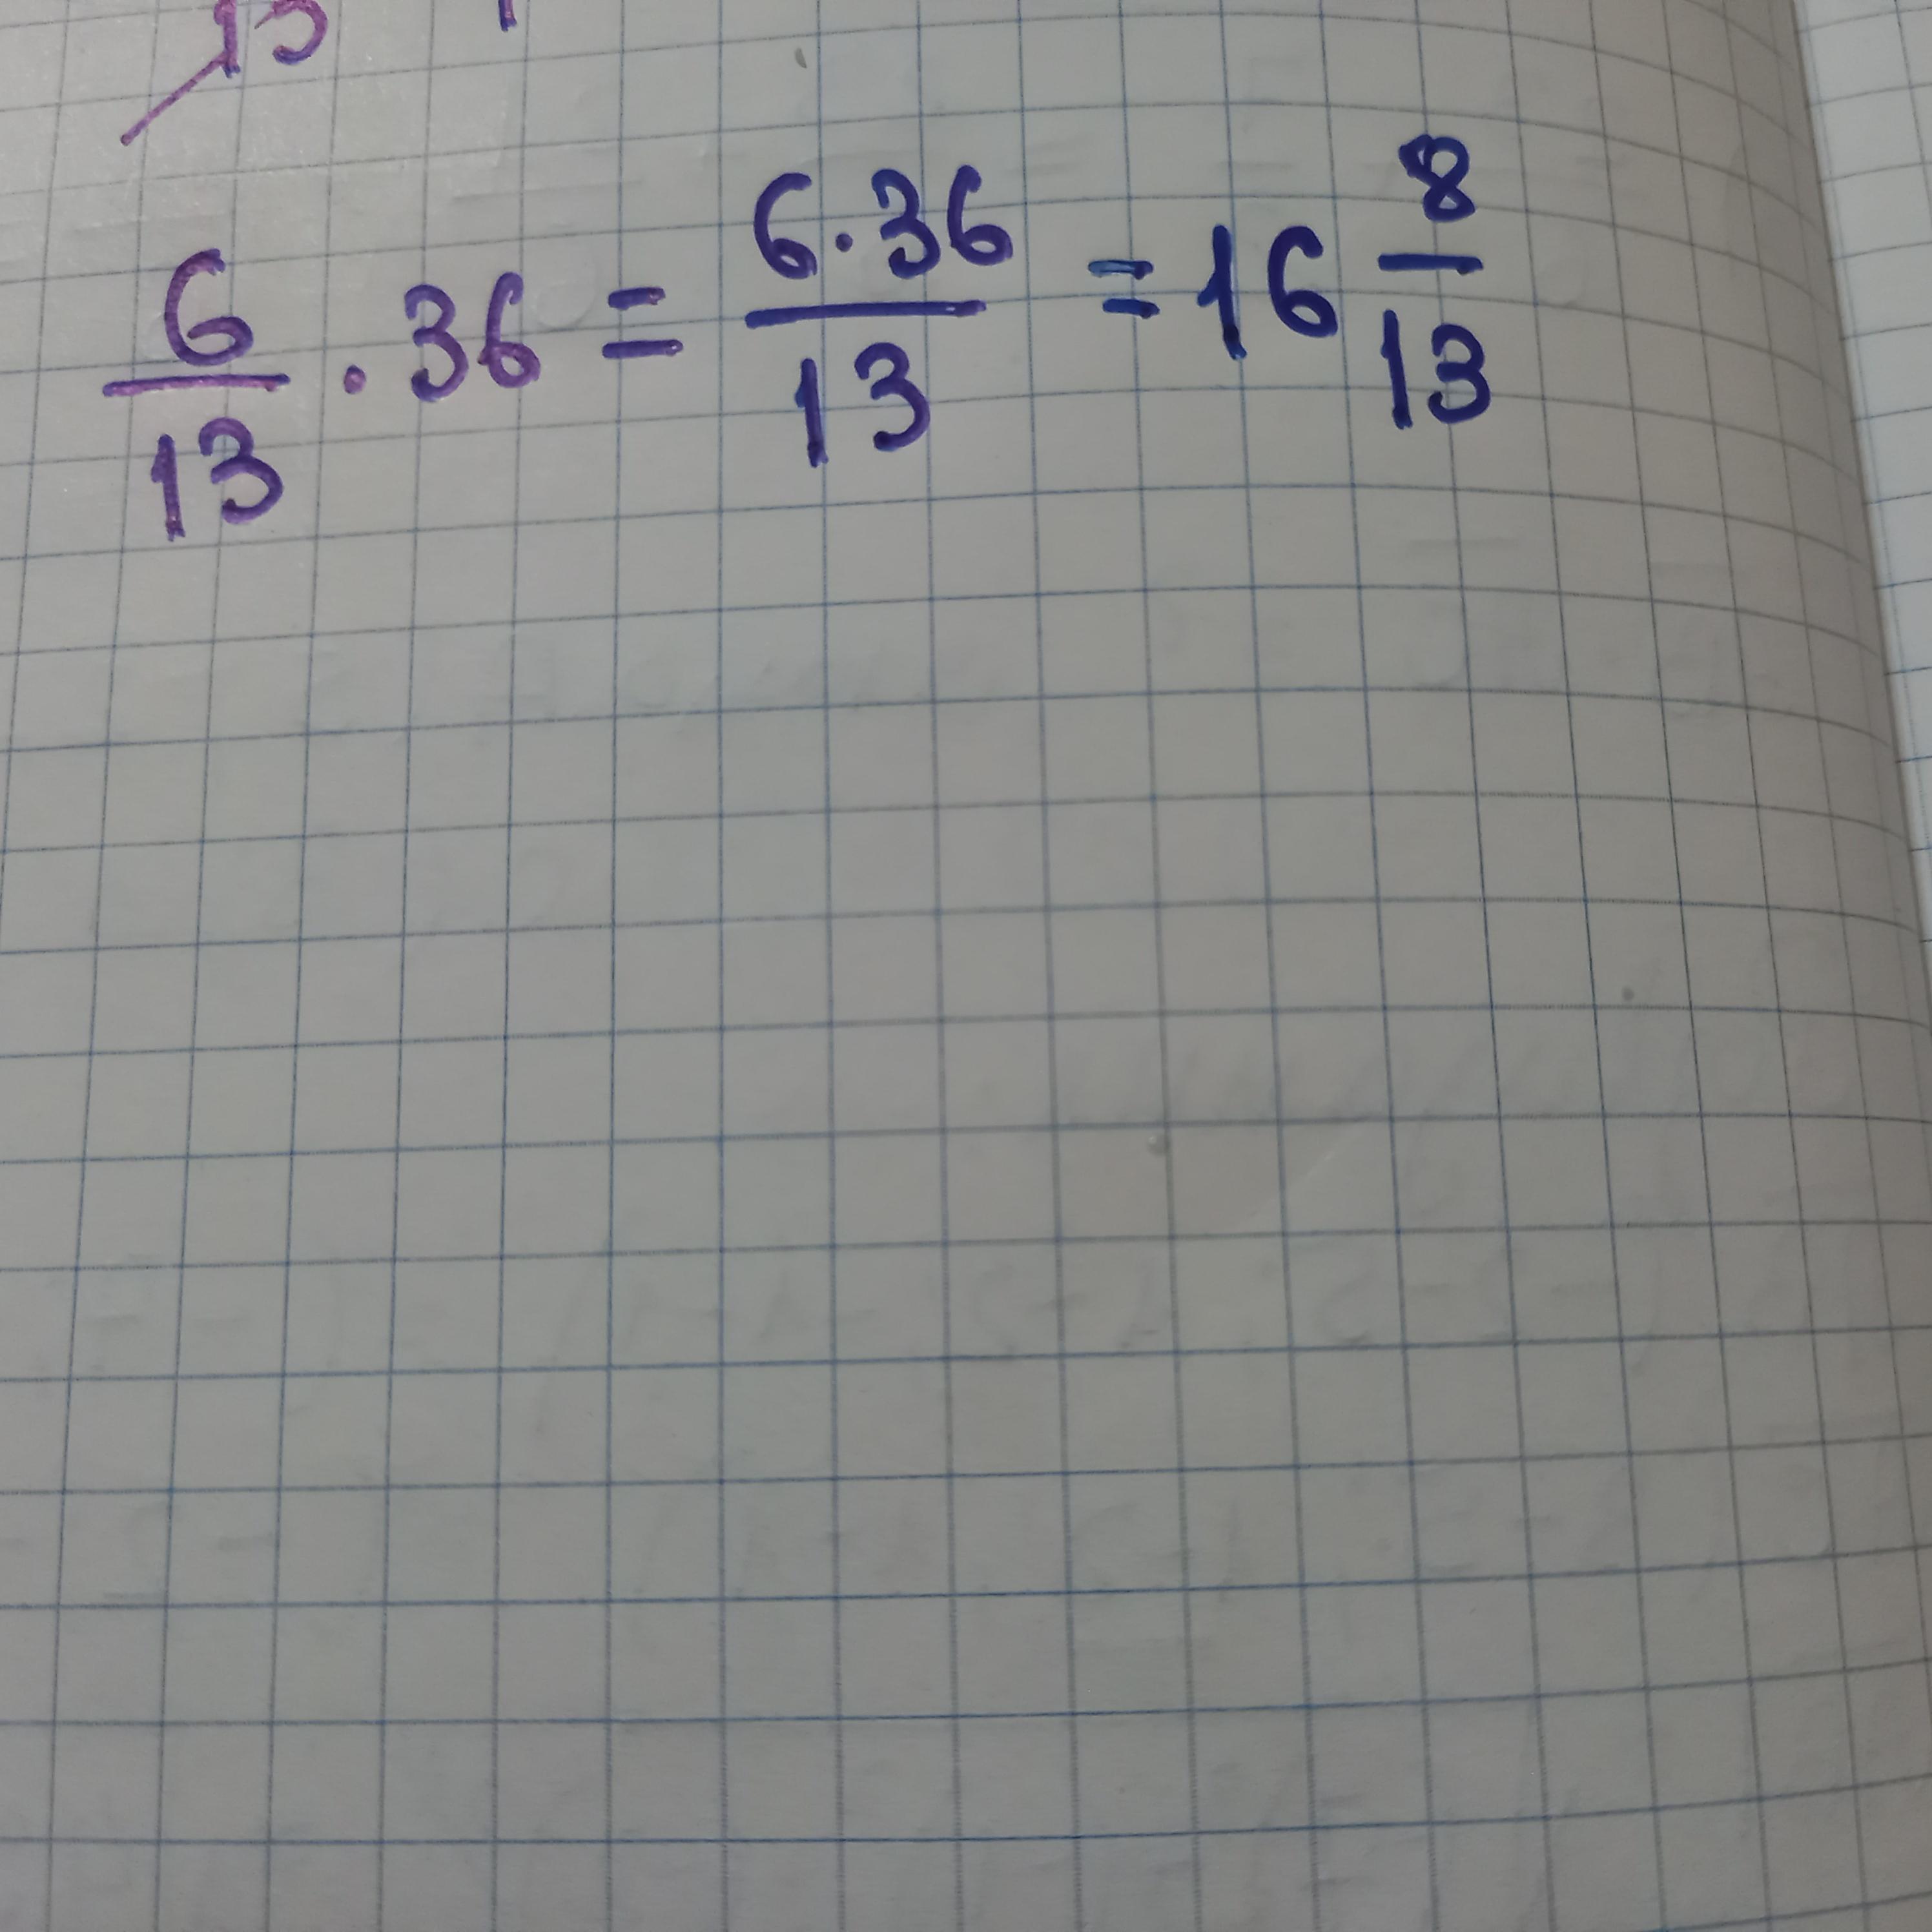 13
6/13 · 36 = 6·36/13 = 16 8/13